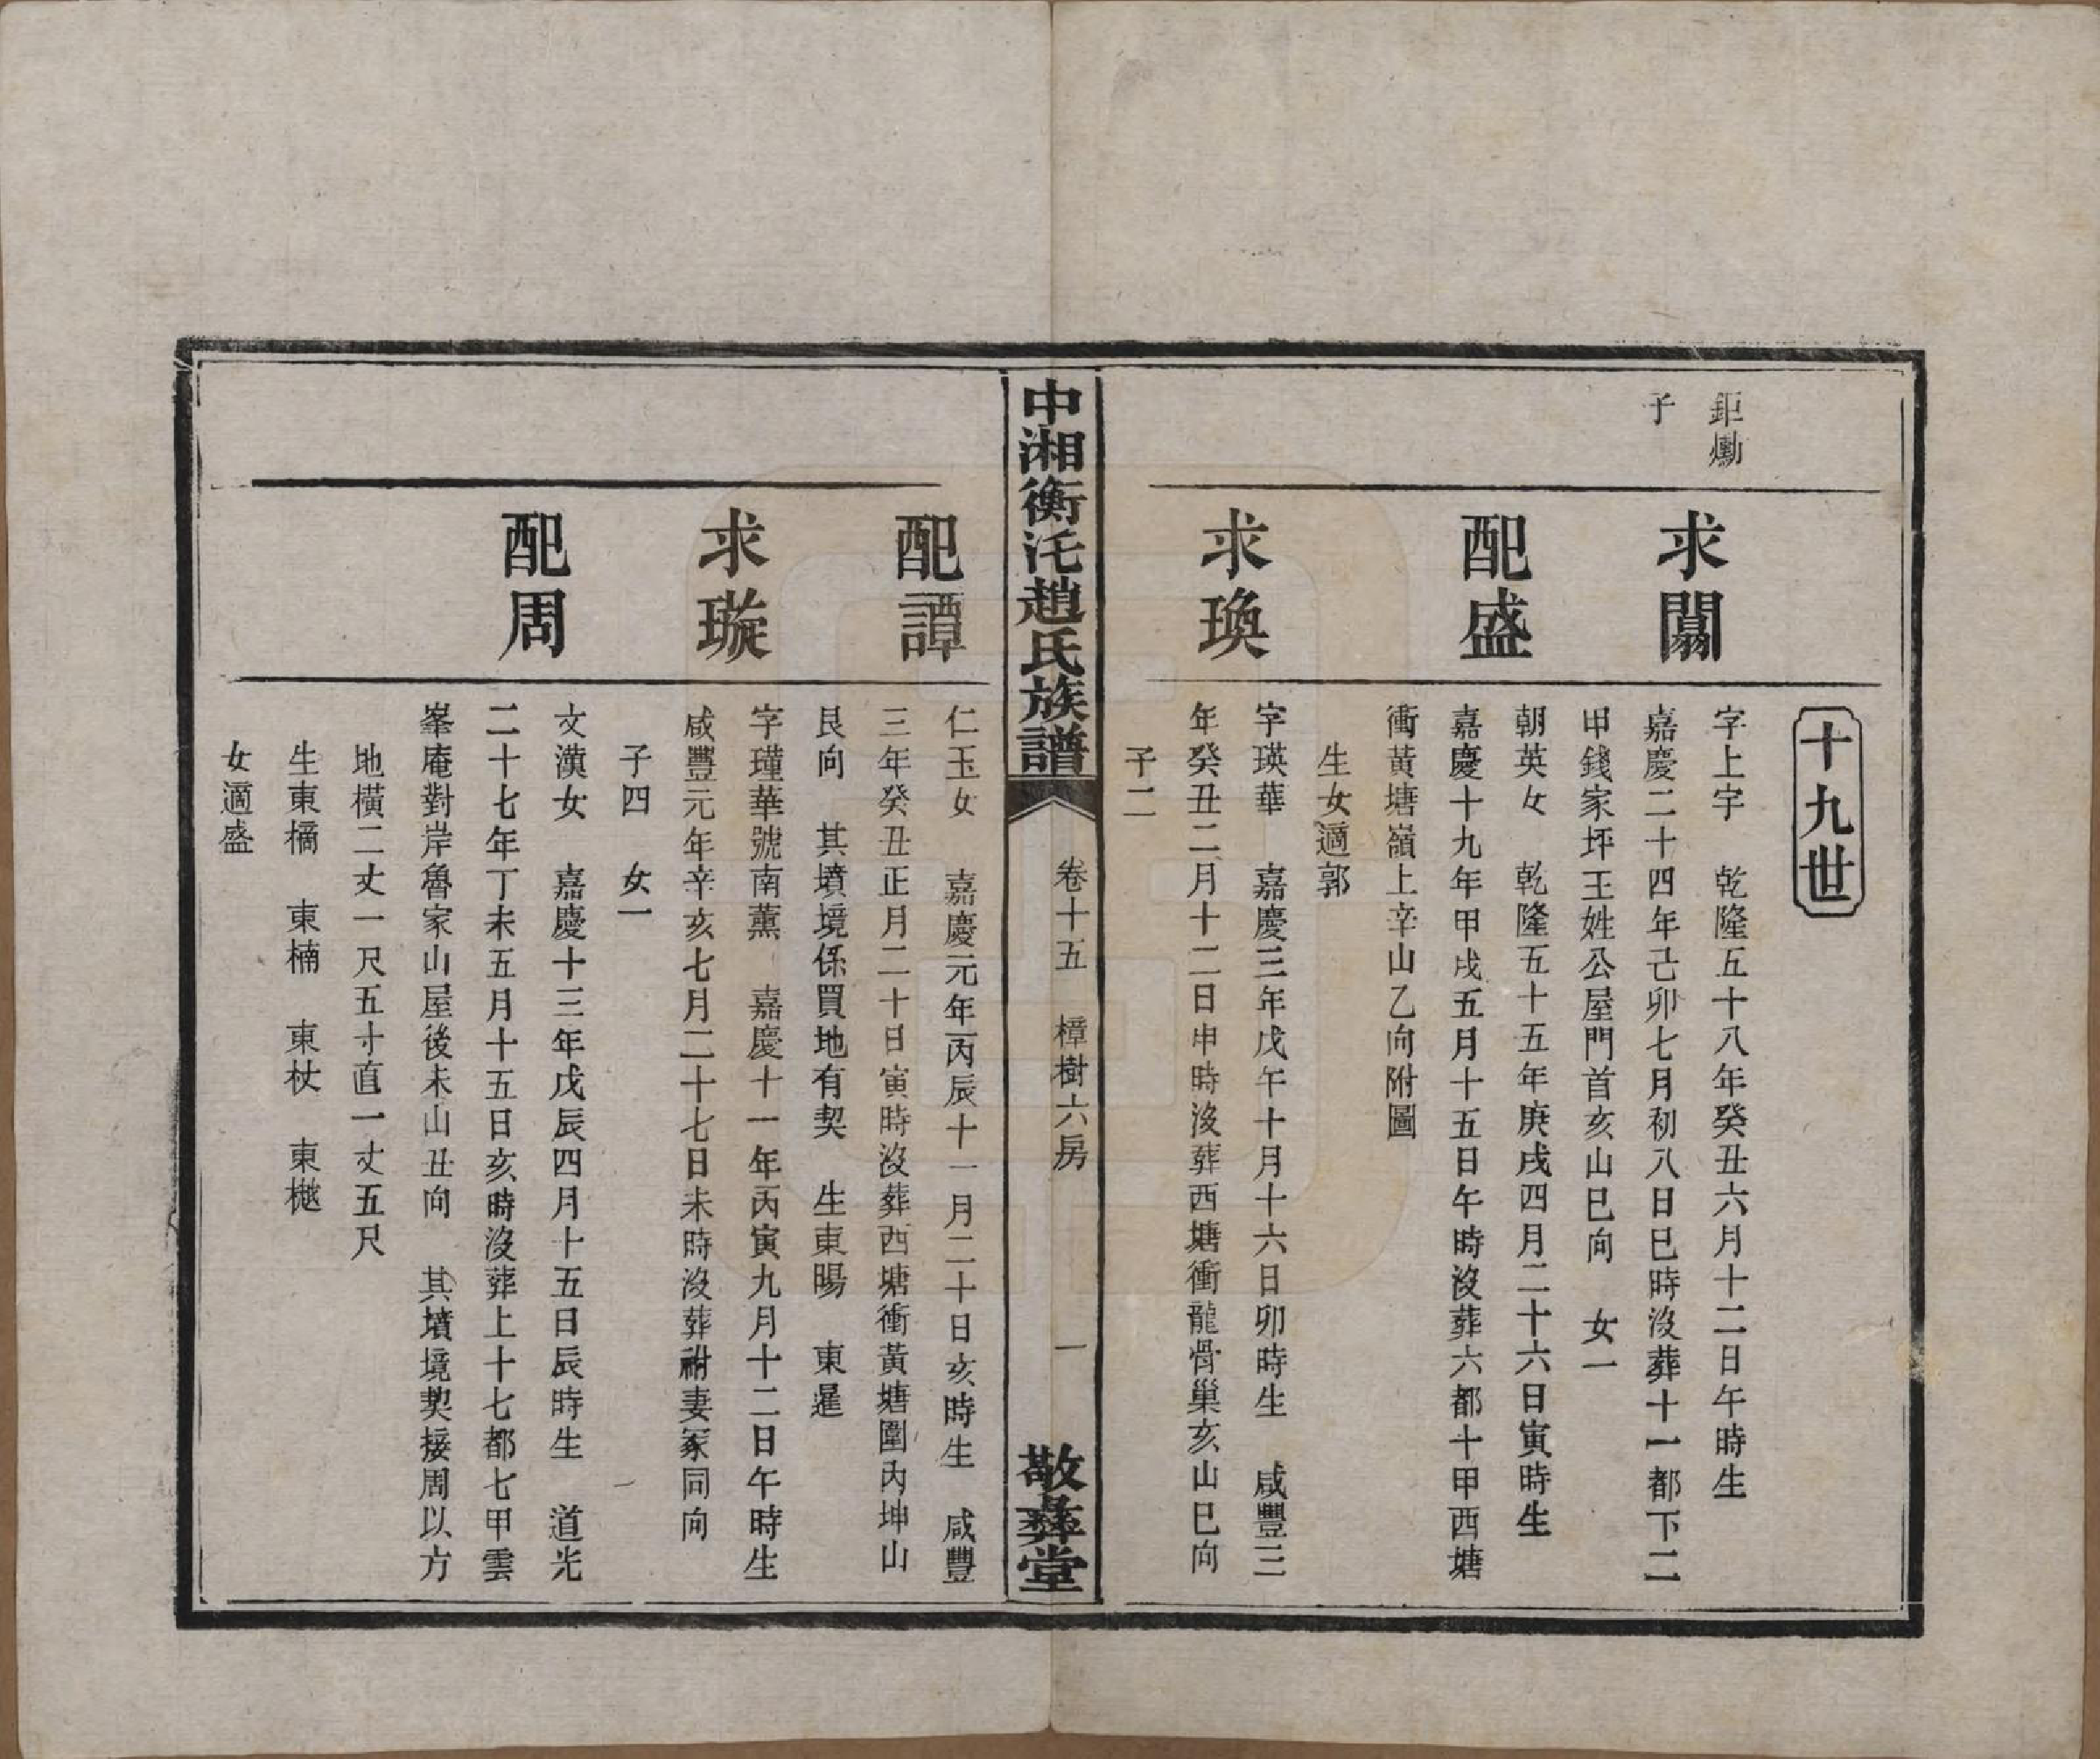 十九世
鉅勱
子
求闆
字上宇　乾隆五十八年癸丑六月十二日午時生
嘉慶二十四年己卯七月初八日巳時沒葬十一都下二
甲錢家坪王姓公屋門首亥山巳向　女一
配盛
朝英女　乾隆五十五年庚戌四月二十六日寅時生
嘉慶十九年甲戌五月十五日午時沒葬六都十甲西塘
衝黃塘嶺上辛山乙向附圖
生女適郭
求瑍
字瑛華　嘉慶三年戊午十月十六日卯時生　咸豐三
年癸丑二月十二日申時沒葬西塘衝龍骨巢亥山巳向
子二
中湘衡汑趙氏族譜
卷十五　樟樹六房
一
敬彝堂
配譚
仁玉女　嘉慶元年丙辰十一月二十日亥時生　咸豐
三年癸丑正月二十日寅時沒葬西塘衝黃塘圍內坤山
艮向　其墳境係買地有契　生東暘　東暹
求璇
字瑾華號南薰　嘉慶十一年丙寅九月十二日午時生
咸豐元年辛亥七月二十七日未時沒葬祔妻冢同向
子四　女一
配周
文漢女　嘉慶十三年戊辰四月十五日辰時生　道光
二十七年丁未五月十五日亥時沒葬上十七都七甲雲
峯庵對岸魯家山屋後未山丑向　其墳境契接周以方
地橫二丈一尺五寸直一丈五尺
生東橘　東楠　東杖　東樾
女適盛